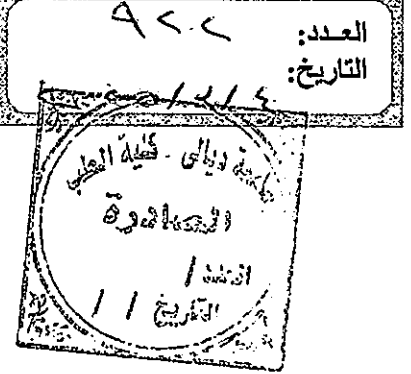 العدد: ٩٢٠٢
التاريخ:
جامعة ديالى - كلية الطب
الصادرة
العدد /
التاريخ / /